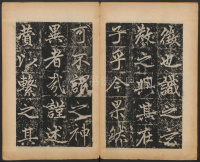 徵也識之云
教之興其在
子乎今果然
可不謂之神
異者哉謹述
賛以繫之其